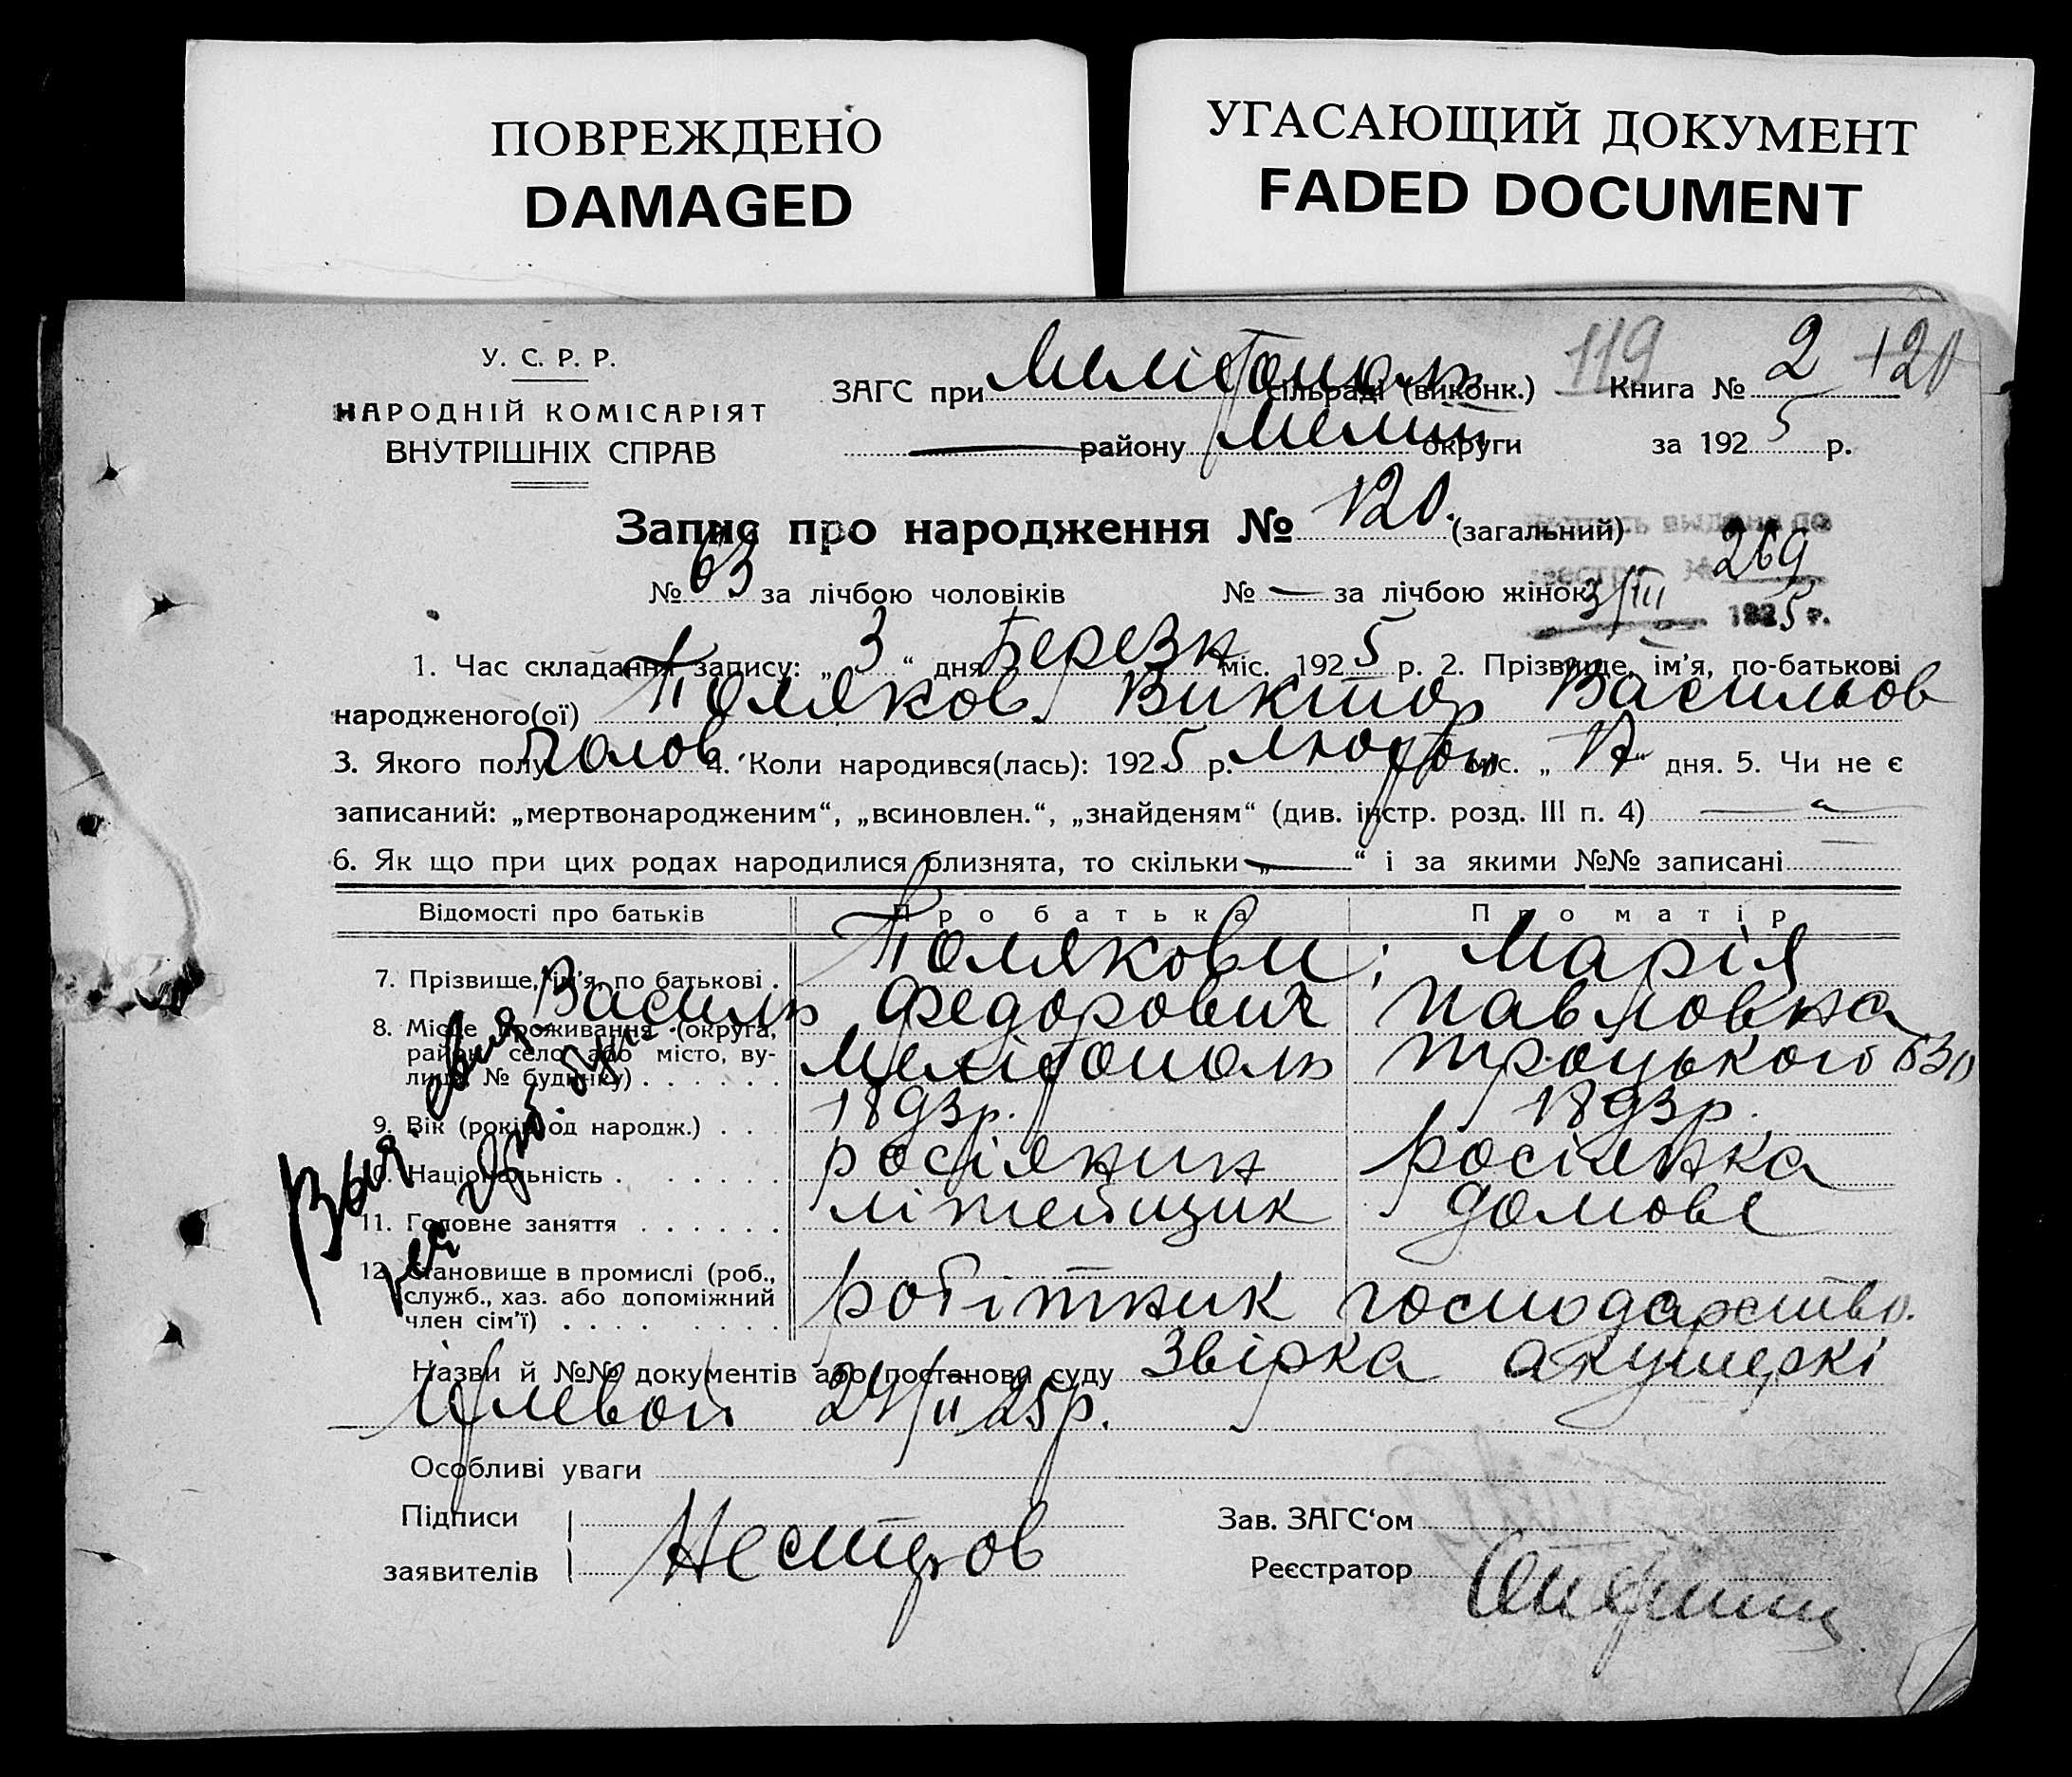 ПОВРЕЖДЕНО
DAMAGED
УГАСАЮЩИЙ ДОКУМЕНТ
FADED DOCUMENT
У. С. Р. Р.
НАРОДНІЙ КОМІСАРІЯТ
ВНУТРІШНІХ СПРАВ
ЗАГС при Мелітополь сільраді (виконк.) 119 Книга № 2 120
району Меліт округи за 1925 р.
Запис про народження № 120. (загальний)
269
№ 63 за лічбою чоловіків № — за лічбою жінок 3/III
1925 р.
1. Час складання запису: „3“ дня Березн міс. 1925 р. 2. Прізвище, ім’я, по-батькові
народженого(ої) Поляков Виктор Васильов
3. Якого полу 4. Коли народився(лась): 1925 р. міс. „17“ дня. 5. Чи не є
записаний: „мертвонародженим“, „всиновлен.“, „знайденям“ (див. інстр. розд. III п. 4)
6. Як що при цих родах народилися близнята, то скільки „—“ і за якими №№ записані
Відомості про батьків Про батька Про матір
Полякови; Марія
7. Прізвище, ім’я, по батькові . Василь Федорович Павловна
8. Місце проживання (округа, район, село, або місто, ву-лиця, № будинку) Мелітополь Троцького
9. Вік (років од народж.) . . 1893р. 1893р.
10. Національність . росіянин росіянка
11. Головне заняття літейщик домове
12. Становище в промислі (роб., служб., хаз. або допоміжний член сім’ї) робітник господарство.
Назви й №№ документів або постанови суду Звірка акушеркі
24/II 25р.
Особливі уваги
Підписи
заявителів Нестеров
Зав. ЗАГС‘ом
Реєстратор